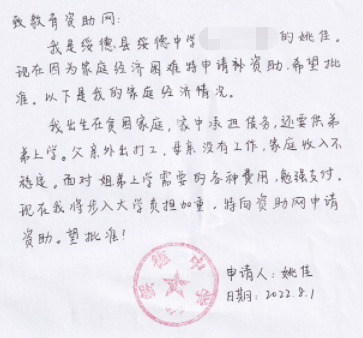 致教育资助网:
我是绥德县绥德中学 的姚佳.
现在因为家庭经济困难特申请补资助.希望批
准。以下是我的家庭经济情况。
我出生在贫困家庭,家中承担债务,还要供弟
弟上学。父亲外出打工,母亲没有工作,家庭收入不
稳定。面对姐弟上学需要的各种费用,勉强支付.
现在我将步入大学负担加重.特向资助网申请
资助。望批准!
申请人:姚佳
日期:2022.8.1